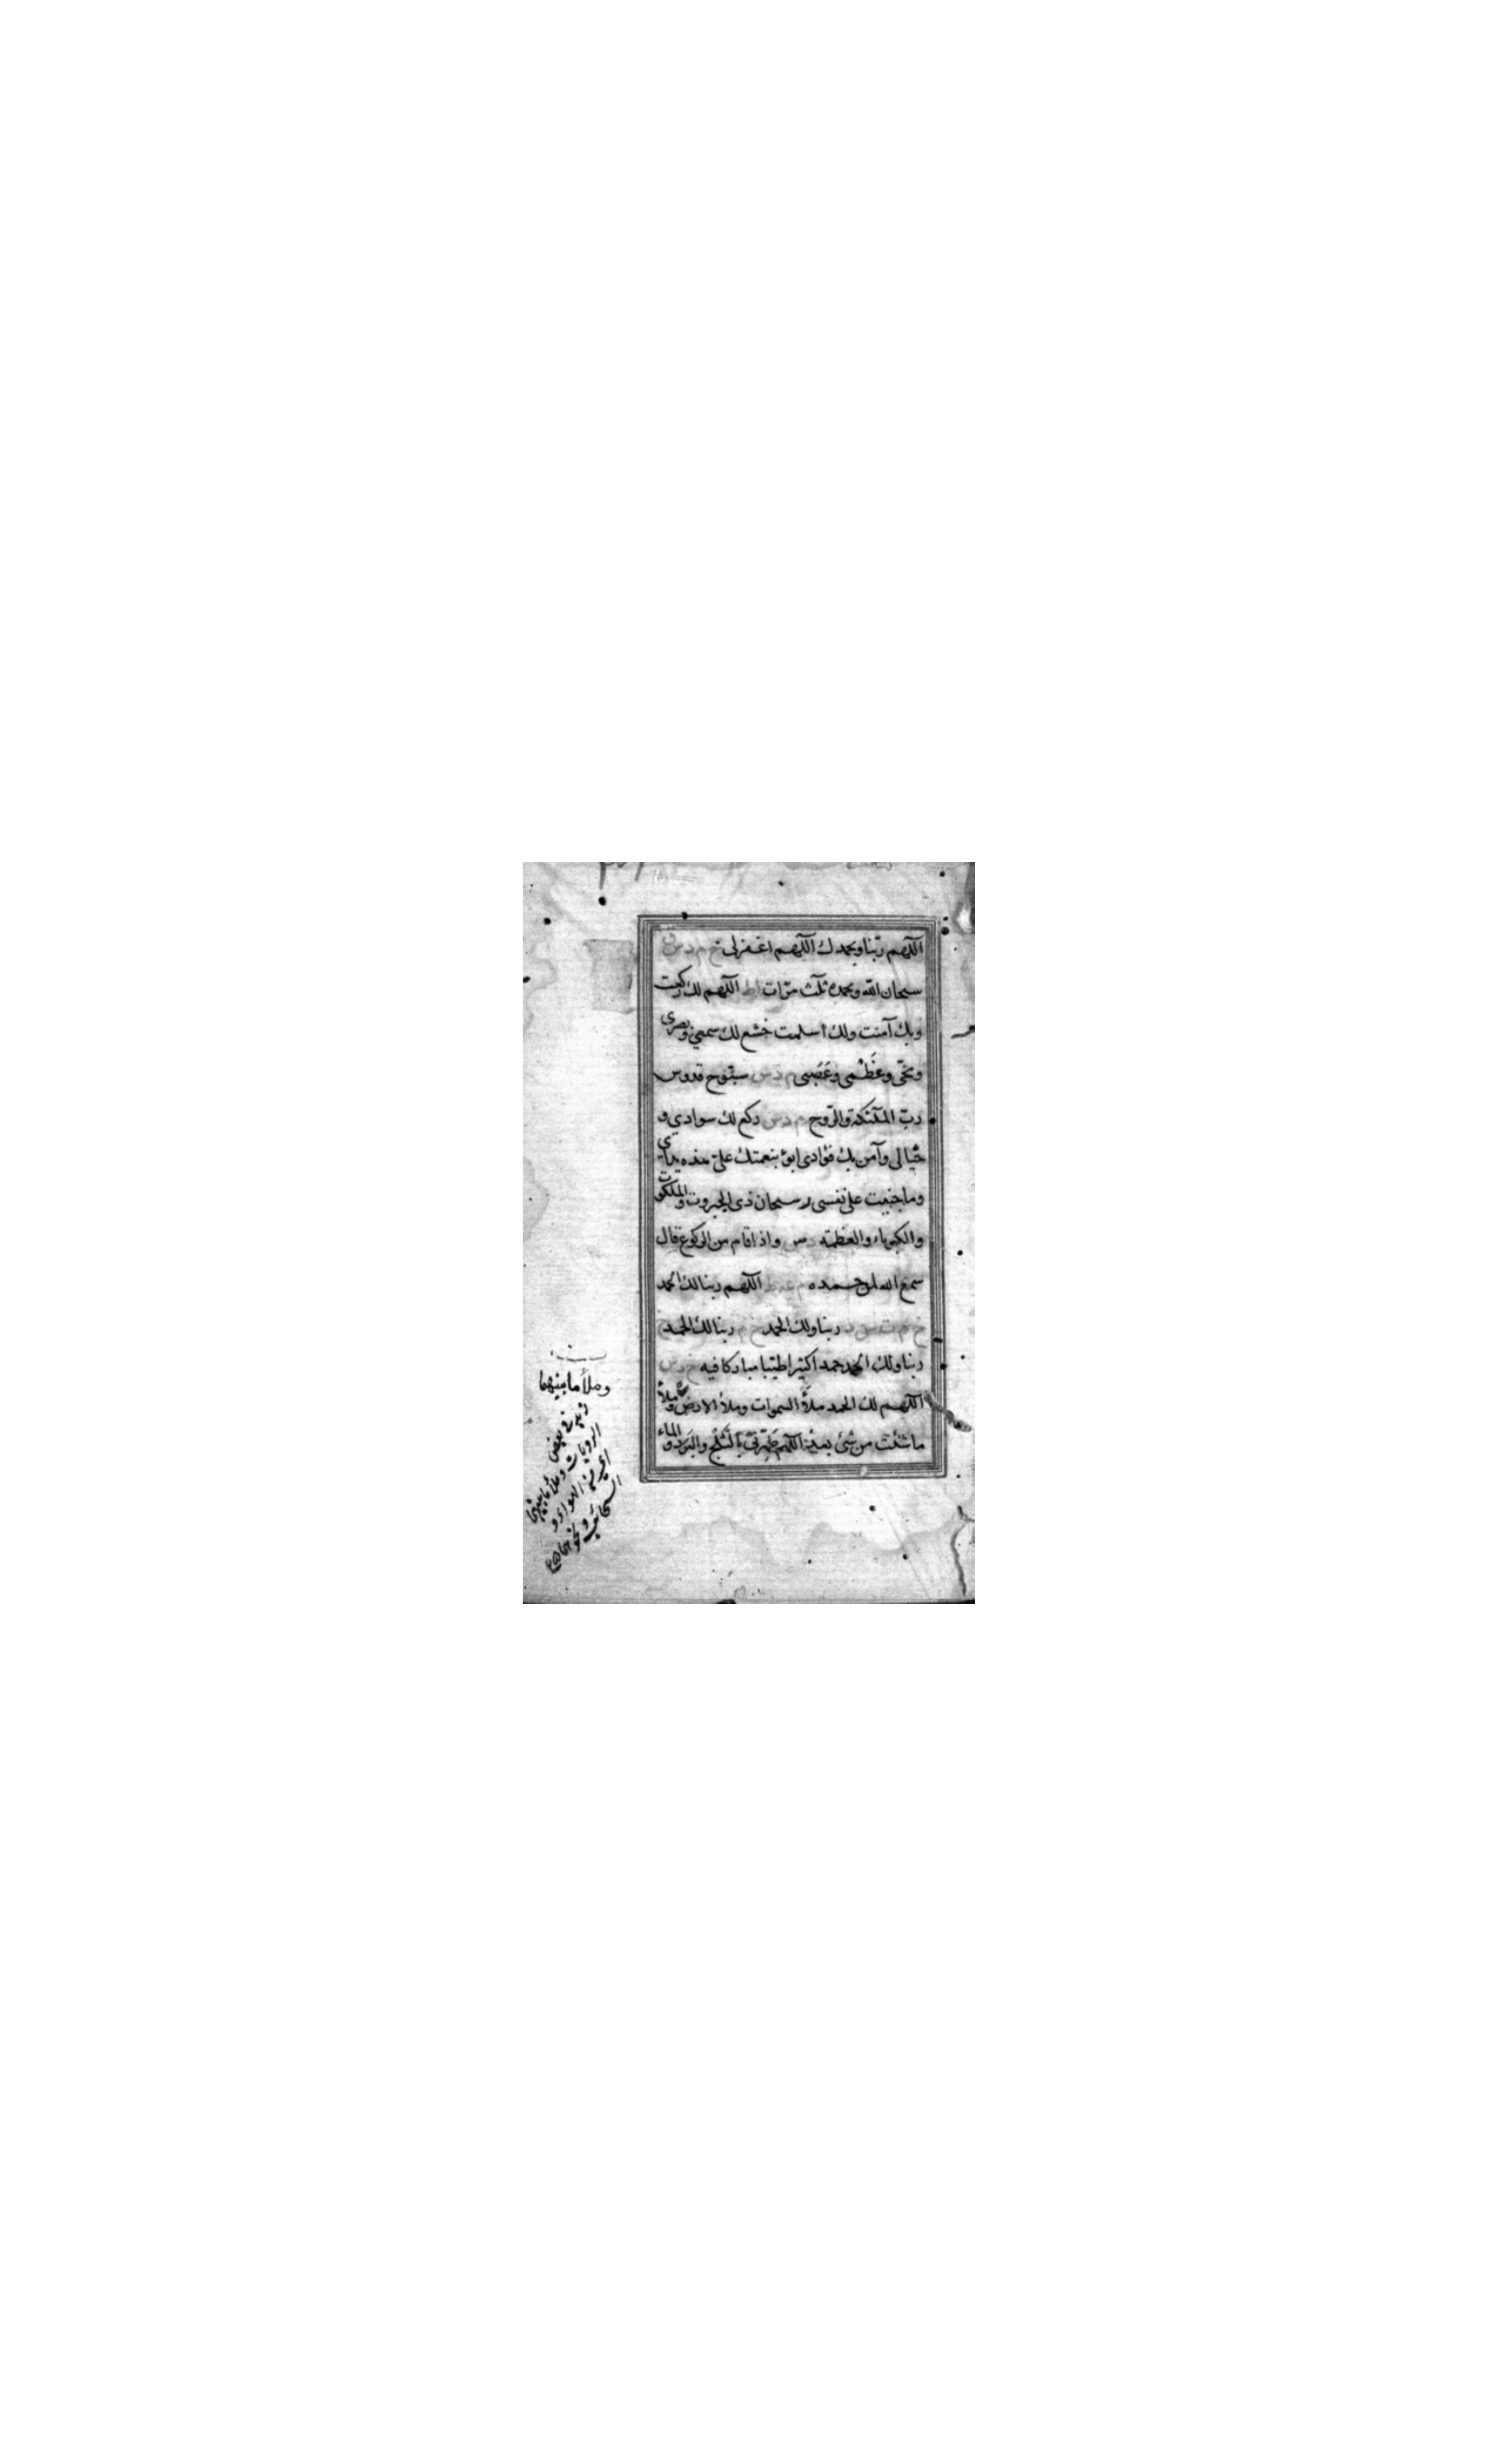 اللهم ربنا وبحمدك اللهم اغفرلى خ م د س ق
سبحان الله وبحمده ثلث مرات اط اللهم لك ركعت
وبك آمنت ولك اسلمت خشع لك سمعي وبصرى
ومخى وعظمى وعصبى م د س سبوح قدوس
رب الملئكة والروح م د س ركع لك سوادي و
خيالى وآمن بك فؤادى ابوء بنعمتك على هذه يداي
وما جنيت على نفسى ر سبحان ذى الجبروت والملكوت
والكبرياء والعظمة د س واذا قام من الركوع قال
سمع الله لمن حمده م عه ط اللهم ربنا لك الحمد
خ م ت س د ربنا ولك الحمد خ م ربنا لك الحمد خ
ربنا ولك الحمد حمدا كثيرا طيبا مباركا فيه خ د س
اللهم لك الحمد ملأ السموات وملأ الارض وملأ
ما شئت من شئ بعد اللهم طهرني بالثلج والبرد والماء
وملأ ما بينهما
زيد في بعض
الروايات وملأ ما بينهما
اي من الهواء و
السحاب ونحوهما